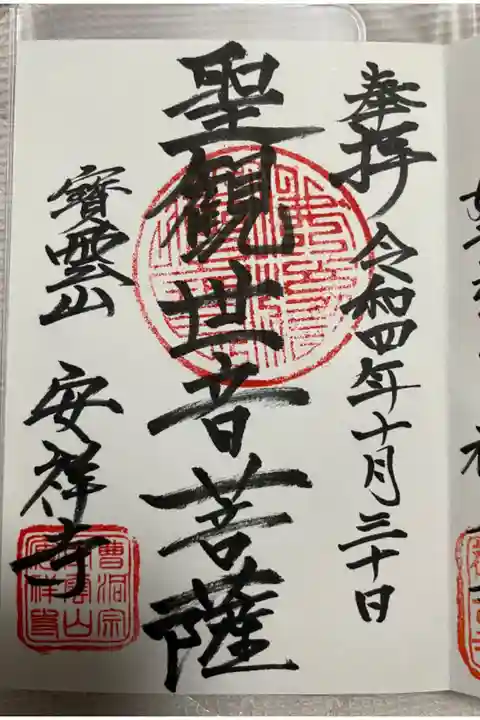 奉拝 令和四年十月三十日
聖観世音菩薩
寳雲山 安祥寺
曹洞宗
寳雲山
安祥寺